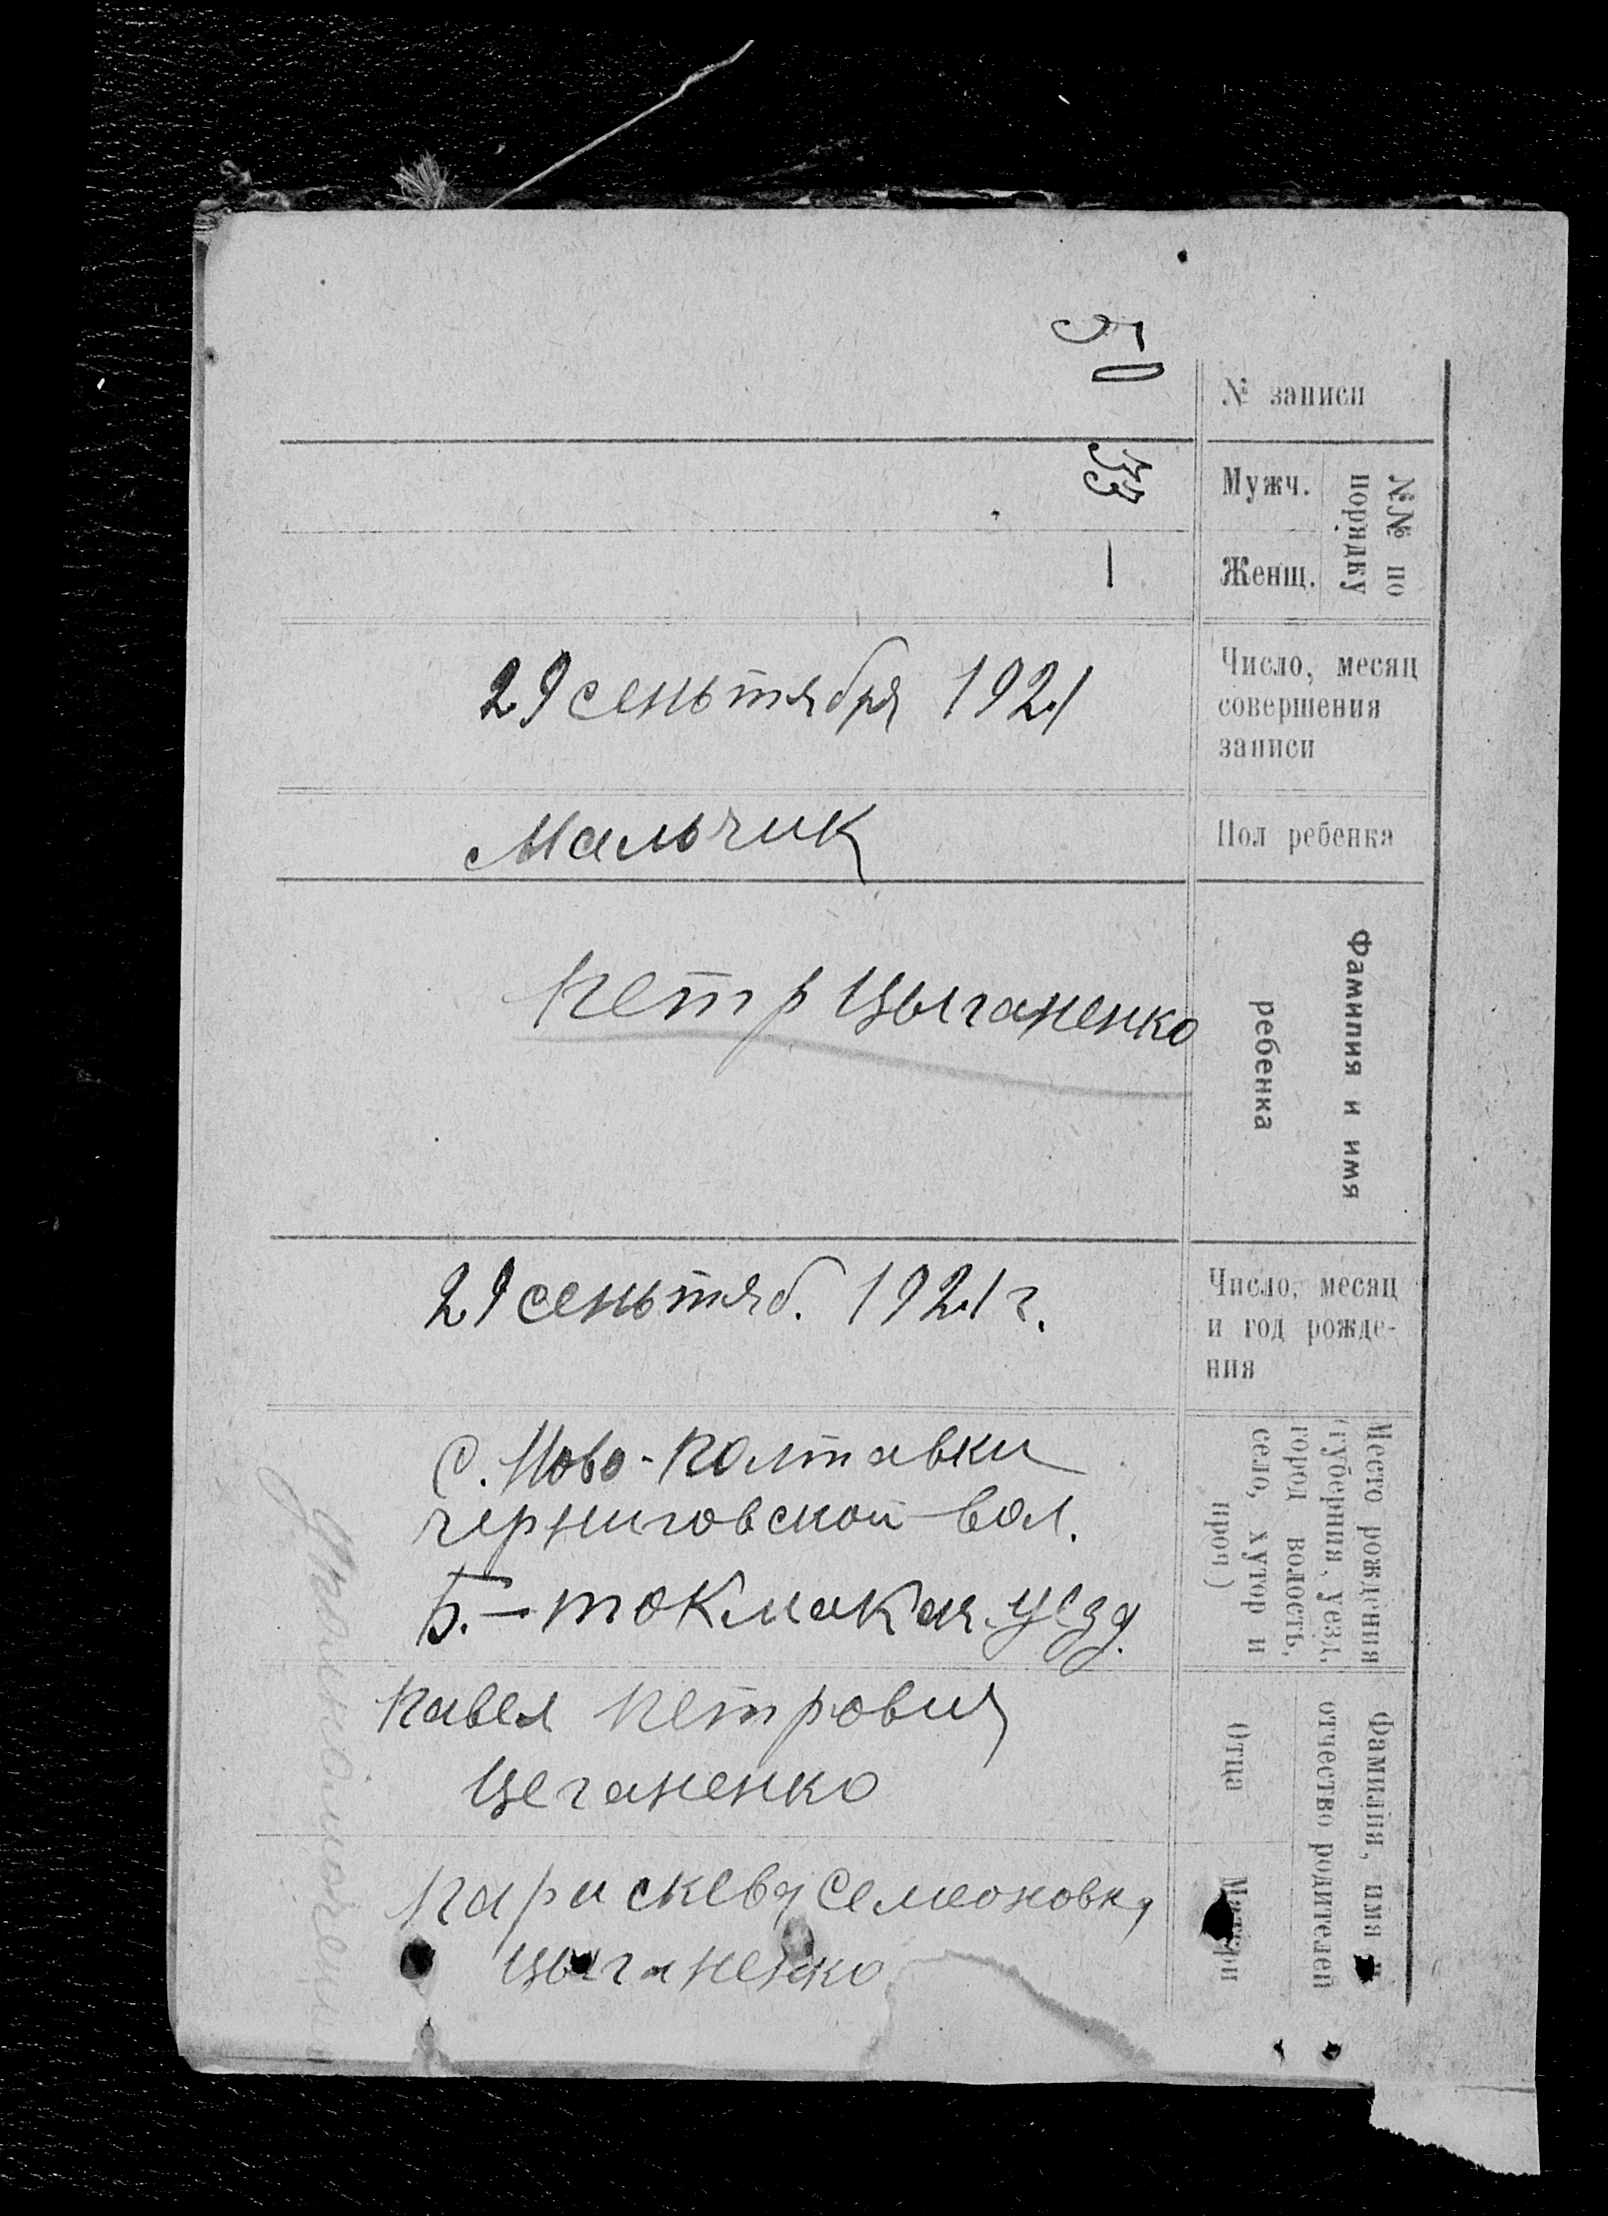 50
№ записи
33
Мужч.
—
Женщ.
№№ по
порядку
29 сеньтября 1921
Число, месяц
совершения
записи
Мальчик
Пол ребенка
Петр Цыганенко
Фамилия и имя
ребенка
29 сеньтяб. 1921 г.
Число, месяц
и год рожде-
ния
с. Ново-Полтавки
черниговской вол.
Б.-токмакск. уезд.
Место рождения
(губерния, уезд,
город волость,
село, хутор и
проч)
Павел Петрович
Цеганенко
Отца
Параскева Семеоновна
Цыганенко
Матери
Фамилия, имя и
отчество родителей